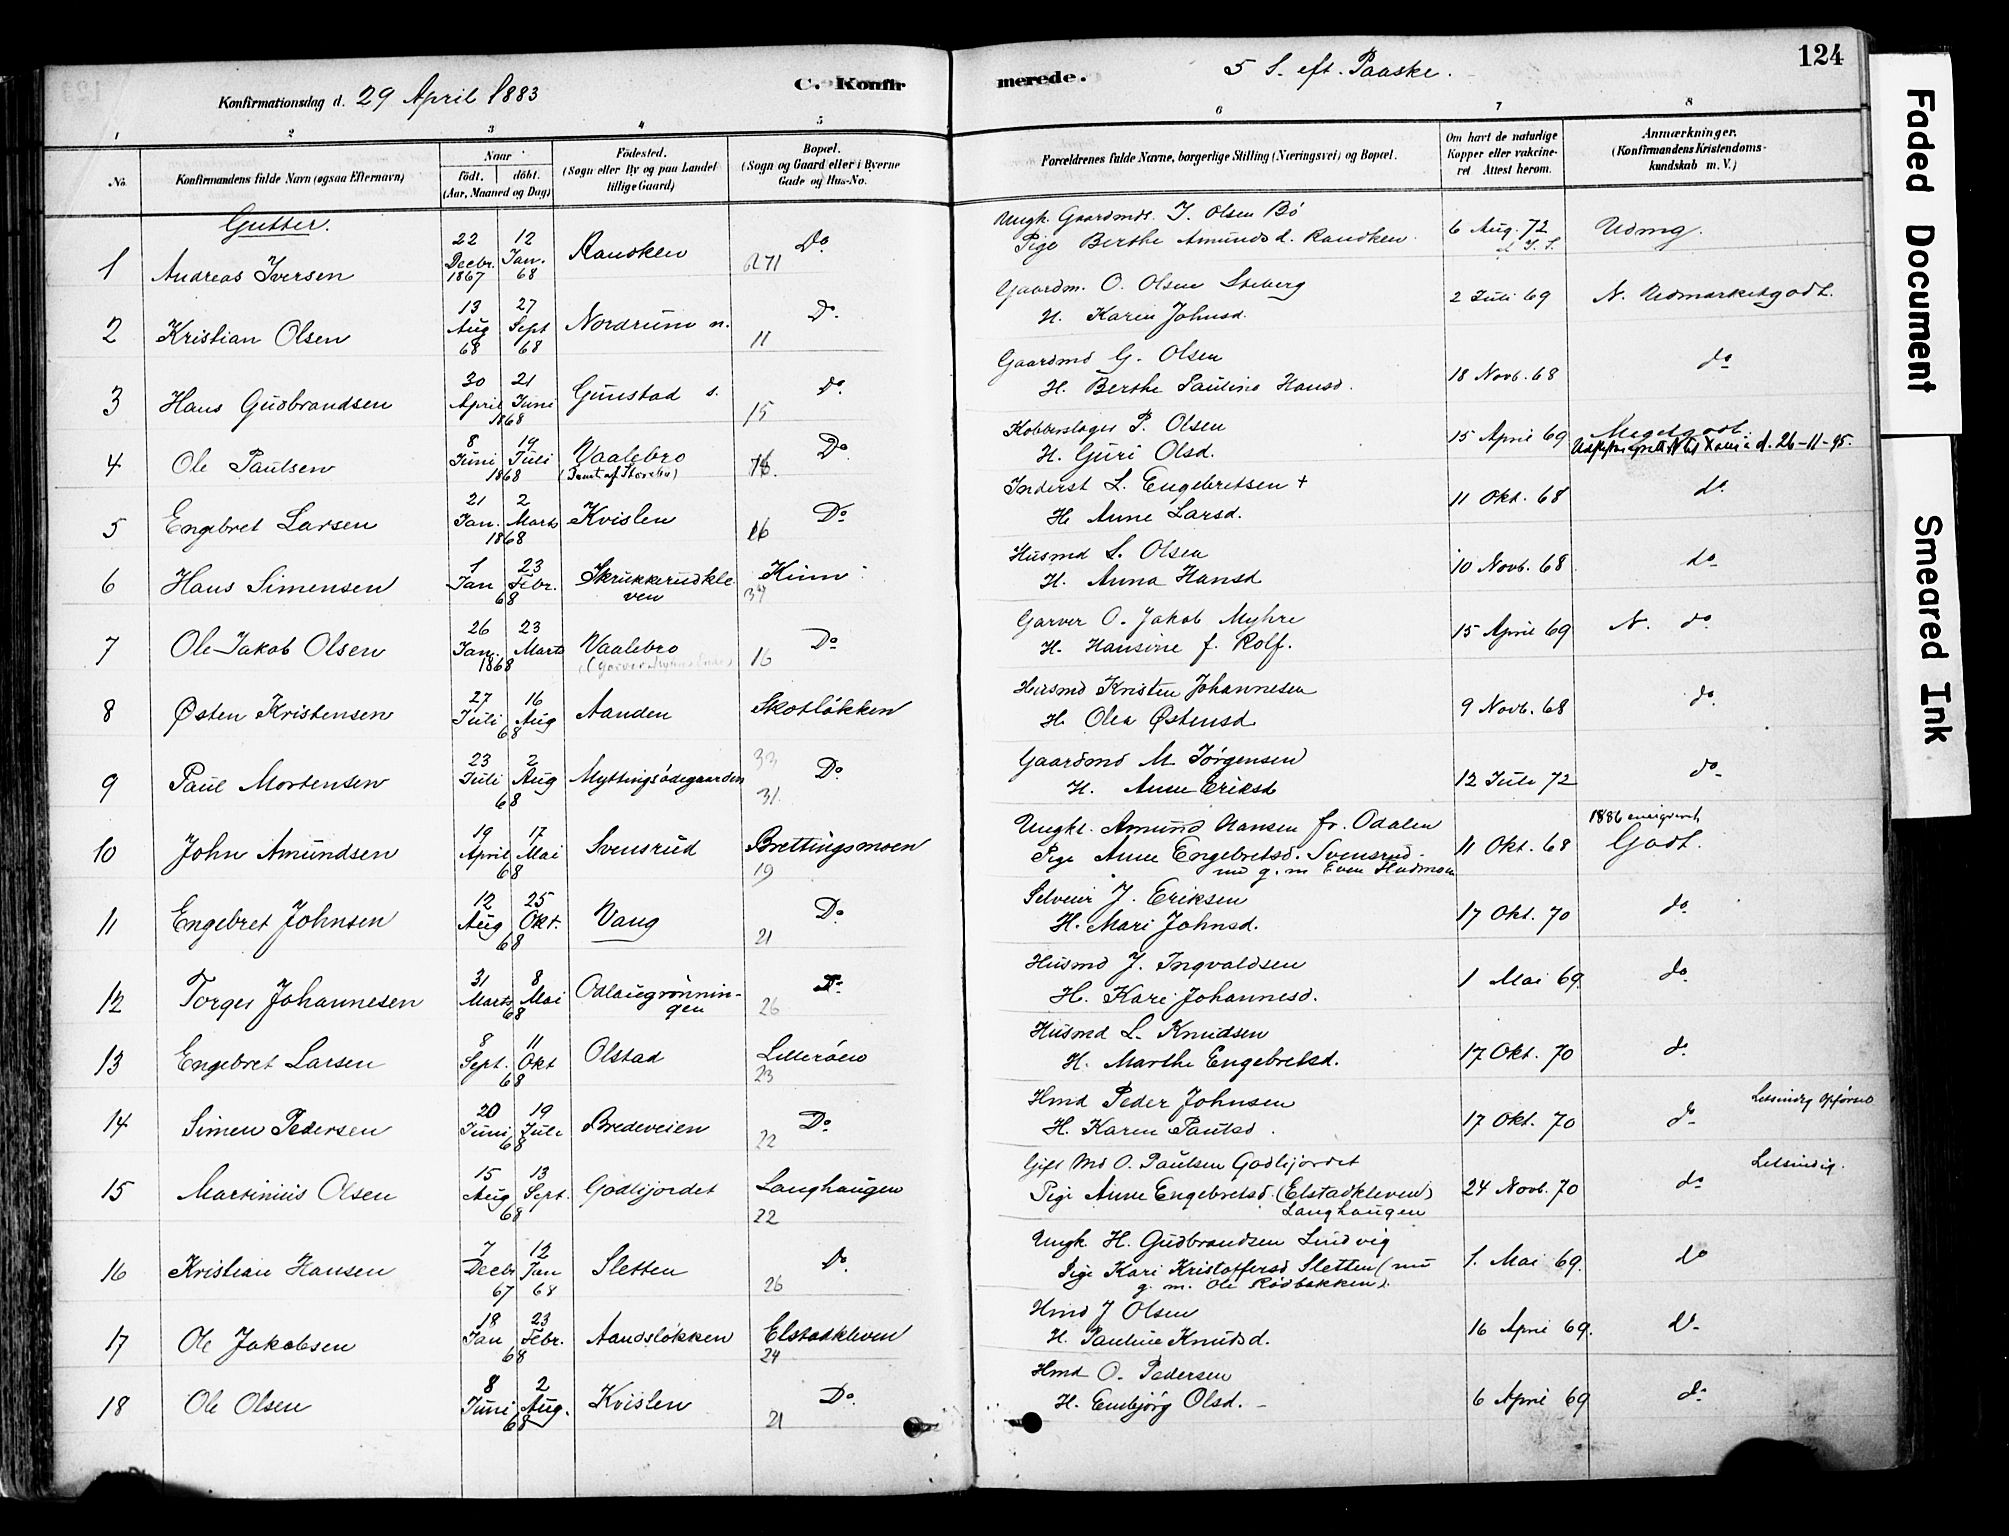 124
Konfirmationsdag d. 29 April 1883
C. Konfirmerede.
5 S. eft. Paaske.
1 2 3 4 5 6 7 8
No.
Konfirmandens fulde Navn (ogsaa Efternavn)
Naar
født. døbt.
(Aar, Maaned og Dag)
Fødested.
(Sogn eller By og paa Landet
tillige Gaard)
Bopæl.
(Sogn og Gaard eller i Byerne
Gade og Hus-No.
Forældrenes fulde Navne, borgerlige Stilling (Næringsvei) og Bopæl.
Om havt de naturlige
Kopper eller vakcine-
ret Attest herom.
Anmærkninger.
(Konfirmandens Kristendoms-
kundskab m. V.)
Gutter.
1 Andreas Iversen 22 Decbr. 1867 12 Jan. 68 Randken Do 271
Ungk. Gaardmds. I. Olsen Bö
Pige Berthe Amundsd. Randken. 6 Aug. 72 Udmg.
2 Kristian Olsen 13 Aug 68 27 Sept 68 Nordrum n. Do. 11
Gaardm. O. Olsen Steberg
H. Karen Johnsd. 2 Juli 69 N. Udmærketgodt.
3 Hans Gudbrandsen 30 April 21 Juni 1868 Gunstad s. do. 15
Gaardmd G. Olsen
H. Berthe Pauline Hansd. 18 Novb. 68 do
4 Ole Paulsen 8 Juni 19 Juli 1868 Vaalebro Do
Kobberslager P. Olsen
H. Guri Olsd. 15 April 69 Megetgodt.
d. 26-11-95.
5 Engebret Larsen 21 Jan. 2 Marts 1868 Kvislen Do 16
Inderst L. Engebretsen +
H. Anne Larsd. 11 Okt. 68 do
6 Hans Simensen 1 Jan 23 Febr. 68 Skrukkerudkle
ven Kinn 34
Husmd S. Olsen
H. Anna Hansd 10 Novb. 68. do
7 Ole Jakob Olsen 26 Jan. 23 Marts 1868 Vaalebro Do 16
Garver O. Jakob Myhre
H. Hansine f. Rolf. 15 April 69 N. do
8 Østen Kristensen 27 Juli 16 Aug 68 Aanden Skotlökken
Husmd Kristen Johannesen
H. Olea Østensd 9 Novb. 68 do.
9 Paul Mortensen 23 Juli 2 Aug 68 Myttingsödegaarden 33 Do 31.
Gaardmd M. Jørgensen
H. Anne Eriksd 12 Juli 72 do
10 John Amundsen 19 April 17 Mai 68 Svensrud Brettingsmoen 19
Ungkl. Amund Hansen fr. Odalen
Pige Anne Engebretsd. Svensrud
nu g. m Even Hudmoen 11 Okt. 68 1886 emigreret
Godt.
11 Engebret Johnsen 12 Aug 25 Okt. 68 Vang Do 21
Selveier J. Eriksen
H. Mari Johnsd. 17 Okt. 70 do
12 Torger Johannesen 31 Marts 8 Mai 68 Odlaugrönnin-
gen Do 26
Husmd J. Ingvaldsen
H. Kari Johannesd. 1 Mai 69. do
13 Engebret Larsen 8 Sept. 11 Okt 68 Olstad Lilleröen 23
Husmd L. Knudsen
H. Marthe Engebretsd. 17 Okt. 70 do
14 Simen Pedersen 20 Juni 19 Juli 68 Bredeveien Do 22
Hmd Peder Johnsen
H. Karen Paulsd. 17 Okt. 70 do Letsindig Opførsel
15 Martinius Olsen 15 Aug 13 Sept. 68 Godlijordet Langhaugen 22
Gift Md O. Paulsen Godlijordet
Pige Anne Engebretsd. (Elstadkleven)
Langhaugen 24 Novb. 70 do Letsindig.
16 Kristian Hansen 7 Decbr 67 12 Jan 68 Sletten Do. 26
Ungk. H. Gudbrandsen Lundvig
Pige Kari Kristoffersd Sletten (nu
g. m. Ole Rödbakken). 1. Mai 69. do
17 Ole Jakobsen 18 Jan 23 Febr. 68 Aandslökken Elstadkleven 24
Hmd J Olsen
H. Pauline Knudsd. 16 April 69. do
18 Ole Olsen 8 Juni 2 Aug. 68 Kvislen Do. 21
Hmd O. Pedersen
H. Embjörg Olsd. 6 April 69 do
Faded Document
Smeared Ink